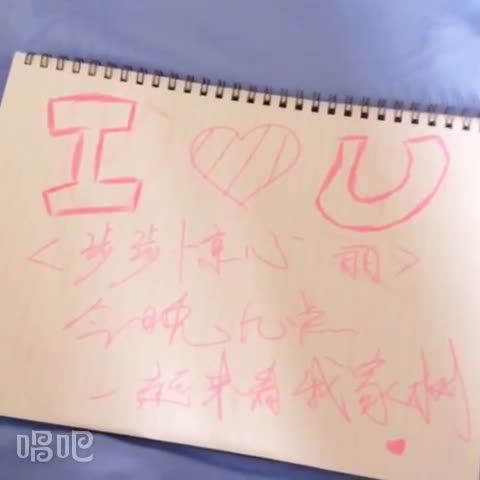 I ♡ U
<步步惊心 丽>
今晚九点
一起来看我家树
唱吧